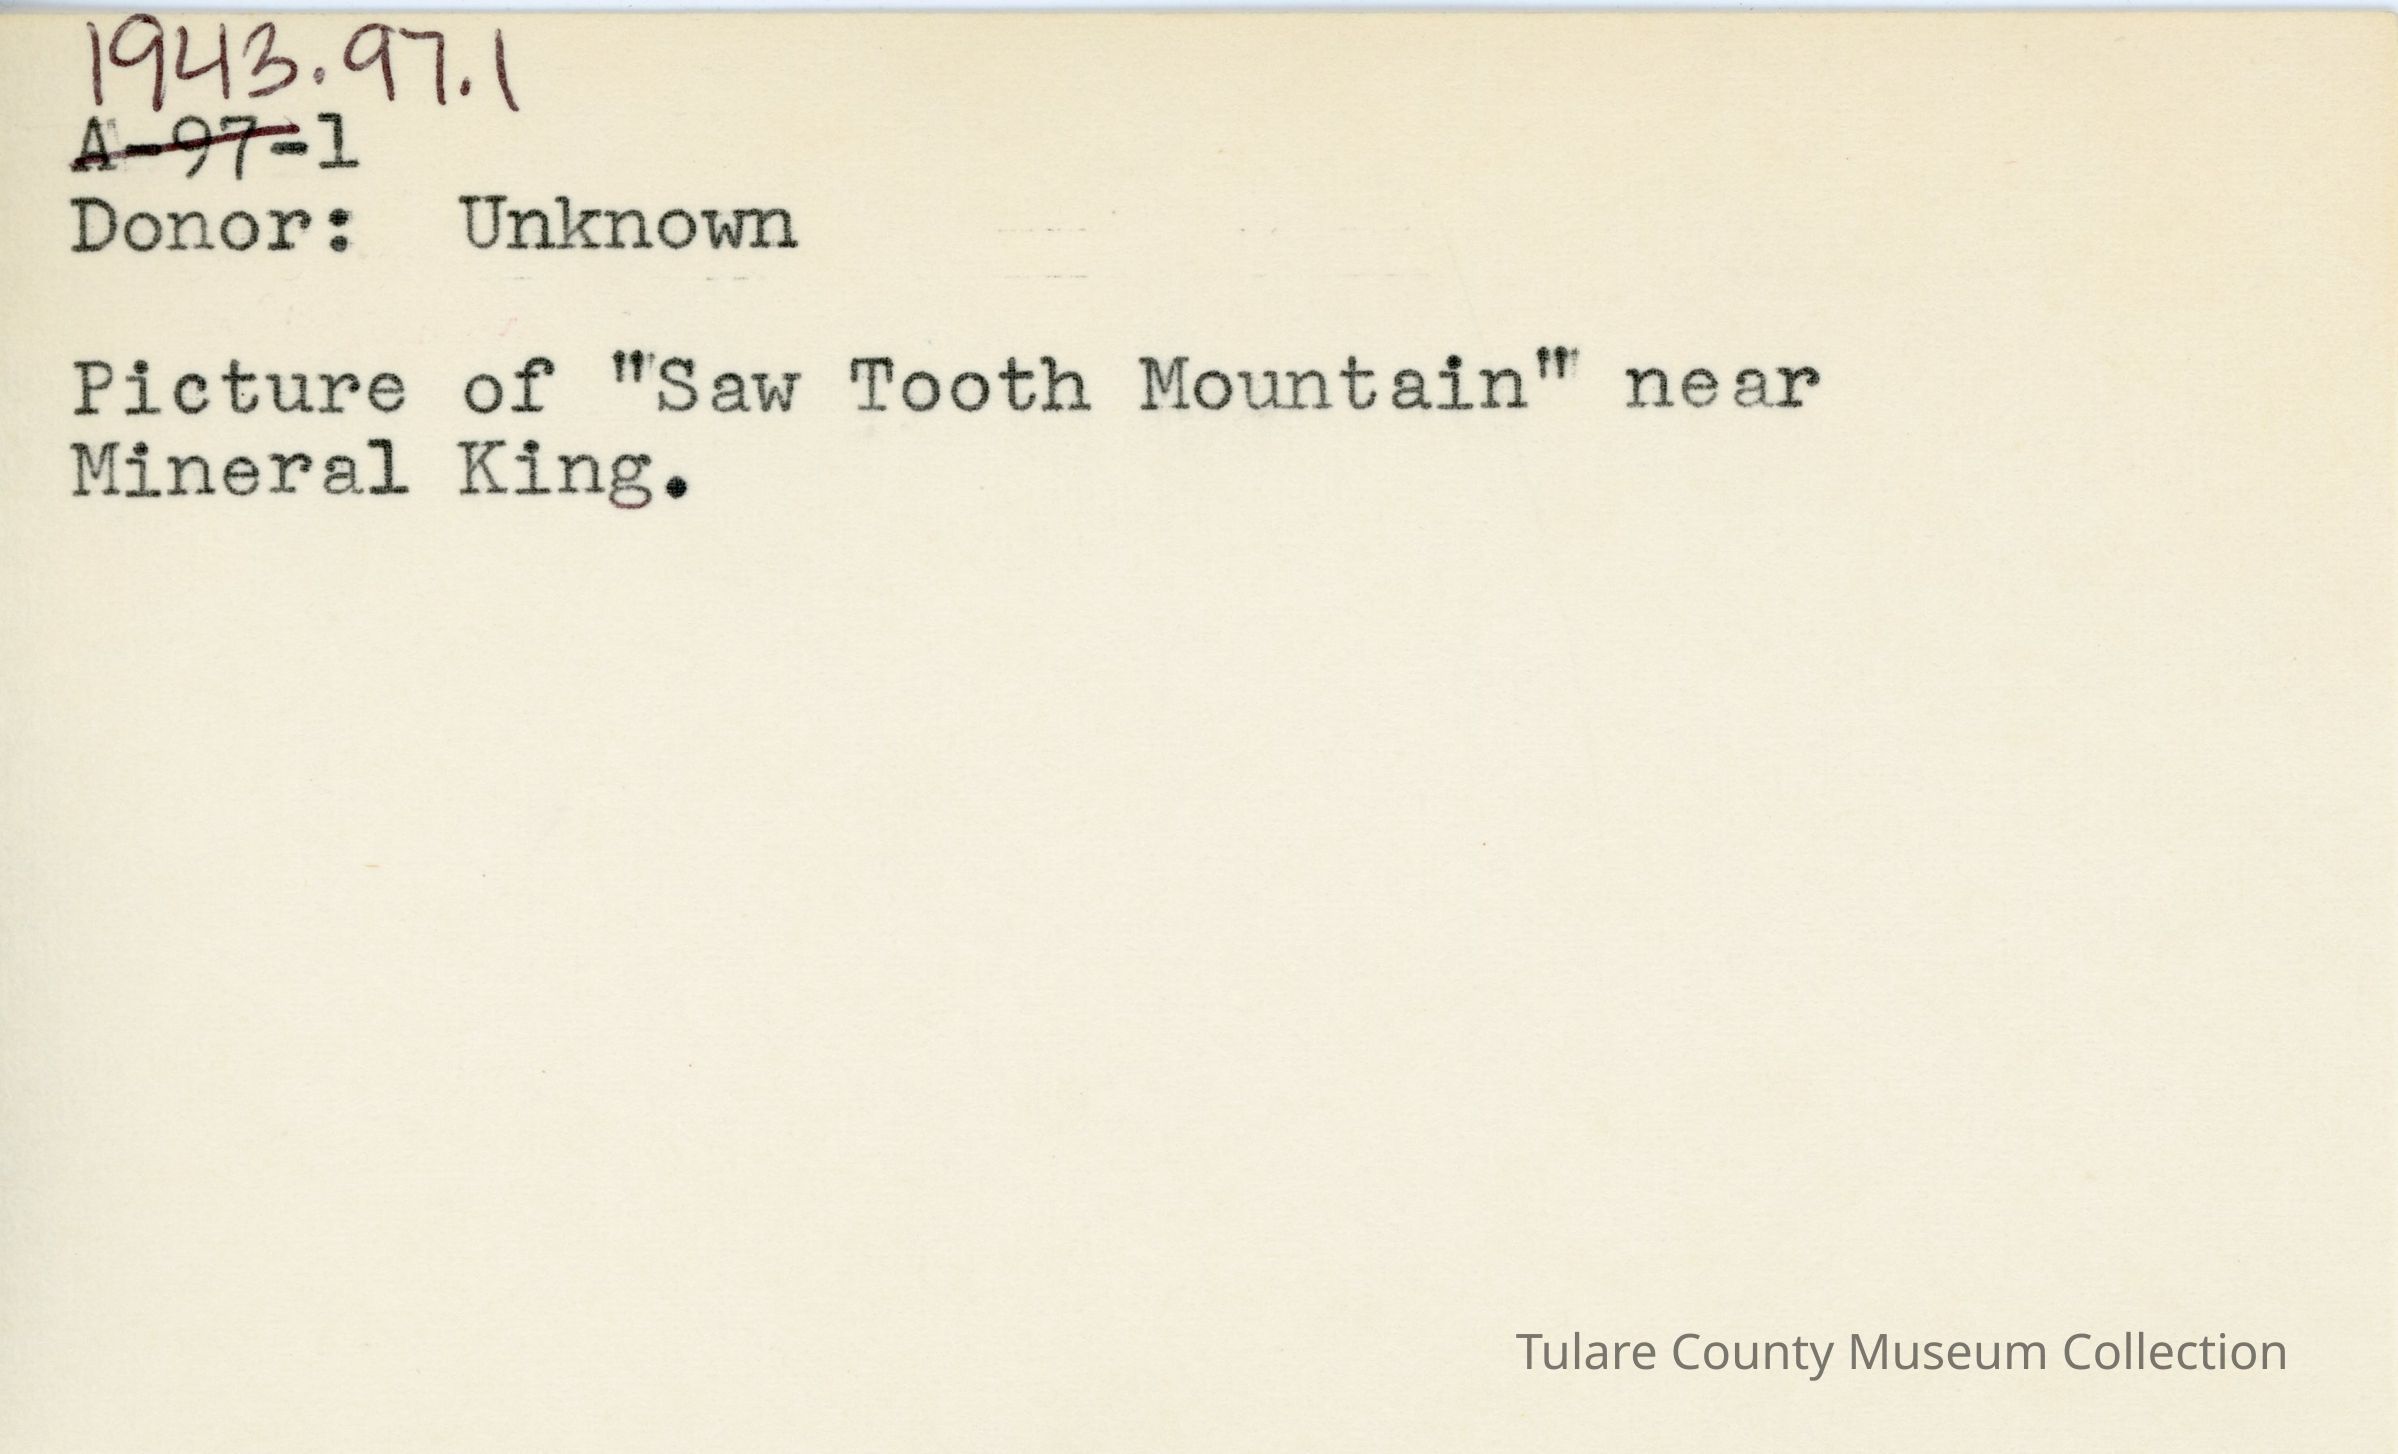 1943.97.1
A-97-1
Donor: Unknown
Picture of "Saw Tooth Mountain" near
Mineral King.
Tulare County Museum Collection